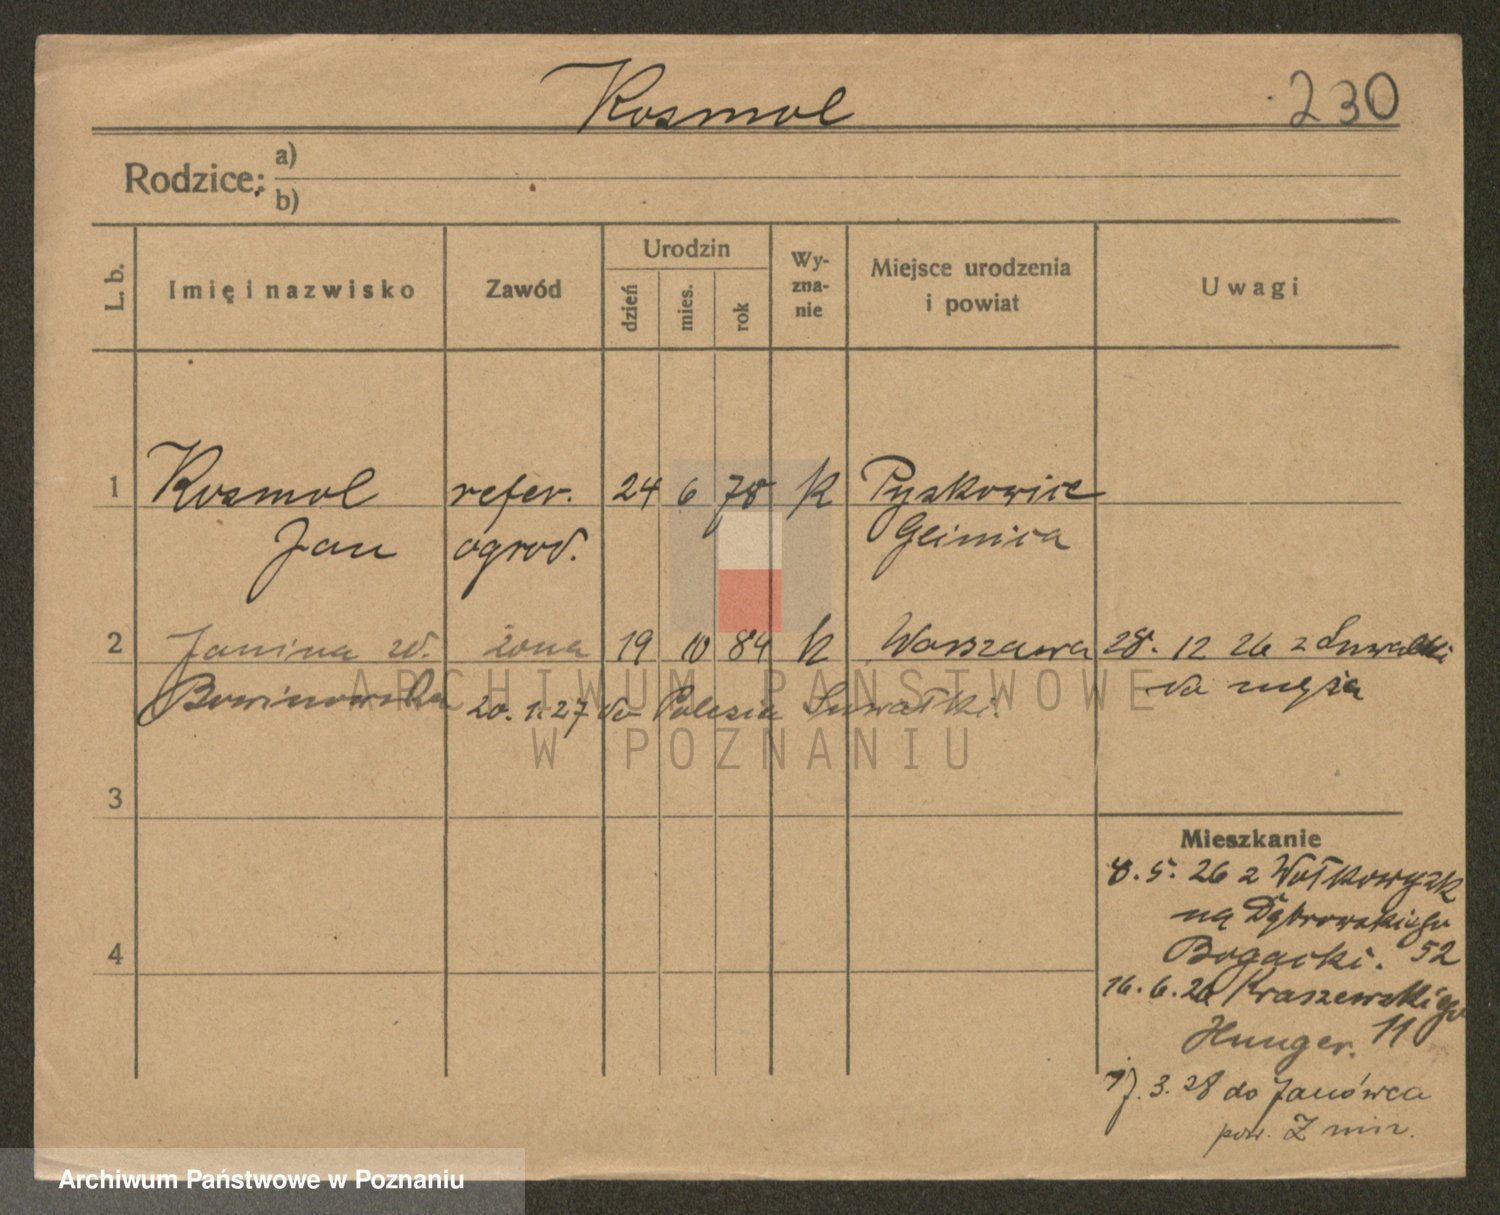 Kosmol
230
Rodzice:
a)
b)
L. b.
Imię i nazwisko
Zawód
Urodzin
dzień
mies.
rok
Wy-
zna-
nie
Miejsce urodzenia
i powiat
Uwagi
1 Kosmol refer. 24 6 78 k Pyskowice
Jan ogrod. Gliwica
2 Janina ur. żona 19 10 84 k Warszawa 28. 12 26 z Suwałki
do męża
20. 1. 27 do Polesia Suwałki.
ARCHIWUM PAŃSTWOWE
W POZNANIU
3
4
Mieszkanie
8. 5. 26 z Wołkowyzk
na Dąbrowskiego
Bogacki. 52
16. 6. 26 Kraszewskiego
Hunger. 11
17. 3. 28 do Janówca
pow. Żnin.
Archiwum Państwowe w Poznaniu